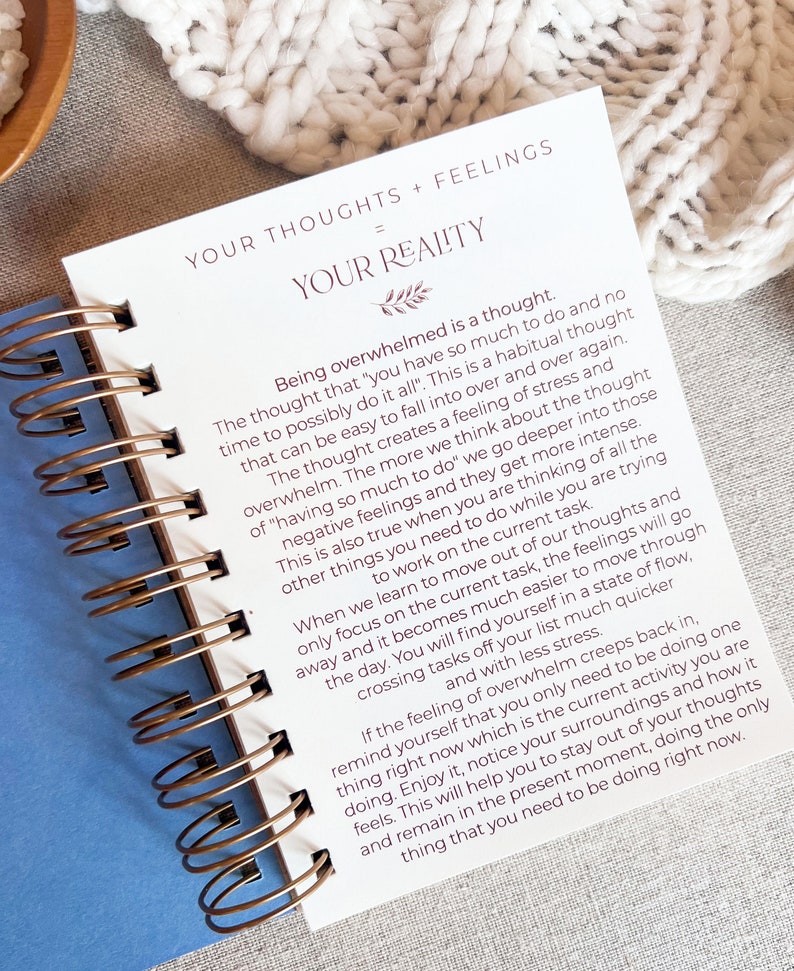 YOUR THOUGHTS + FEELINGS
=
YOUR REALITY
Being overwhelmed is a thought.
The thought that "you have so much to do and no
time to possibly do it all". This is a habitual thought
that can be easy to fall into over and over again.
The thought creates a feeling of stress and
overwhelm. The more we think about the thought
of "having so much to do" we go deeper into those
negative feelings and they get more intense.
This is also true when you are thinking of all the
other things you need to do while you are trying
to work on the current task.
When we learn to move out of our thoughts and
only focus on the current task, the feelings will go
away and it becomes much easier to move through
the day. You will find yourself in a state of flow,
crossing tasks off your list much quicker
and with less stress.
If the feeling of overwhelm creeps back in,
remind yourself that you only need to be doing one
thing right now which is the current activity you are
doing. Enjoy it, notice your surroundings and how it
feels. This will help you to stay out of your thoughts
and remain in the present moment, doing the only
thing that you need to be doing right now.